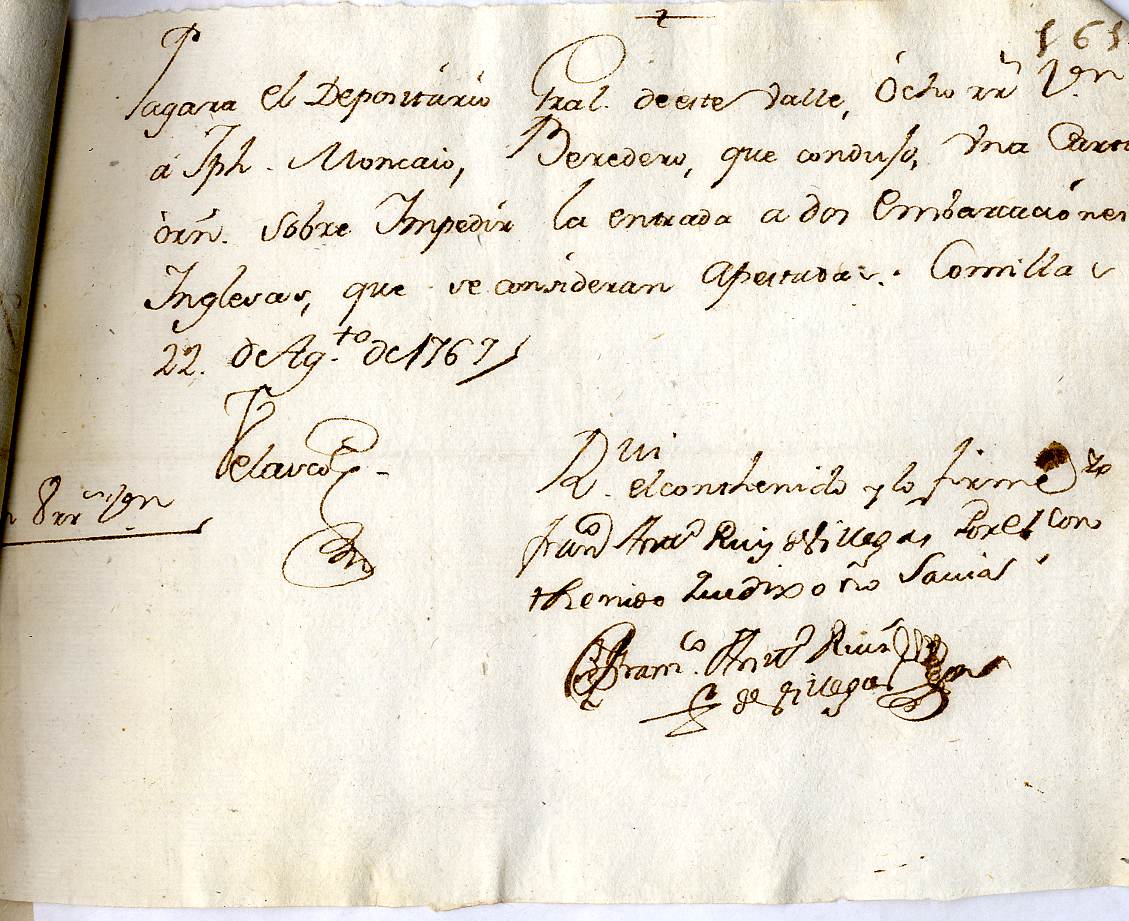 161
Pagara el Depositário Gral. de este Valle, Ócho rr.ˢ V.ᵒⁿ
á Jph. Moncaio, Beredero, que condujo, Vna Carta
órn. sobre Impedir la entrada a dos Embarcaciónes
Inglesas, que se consideran Apestadas. Comillas
22. de Ag.ᵗᵒ de 1767
Velasco
8 rr.ˢ V.ᵒⁿ
Rui
R. el conthenido y lo firmé Yo
Fran.ᶜᵒ Antt.º Ruiz de Villegas Por el Con
thenido Que dixo no Savia
Fran.ᶜᵒ Antt.º Ruiz
de Villegas